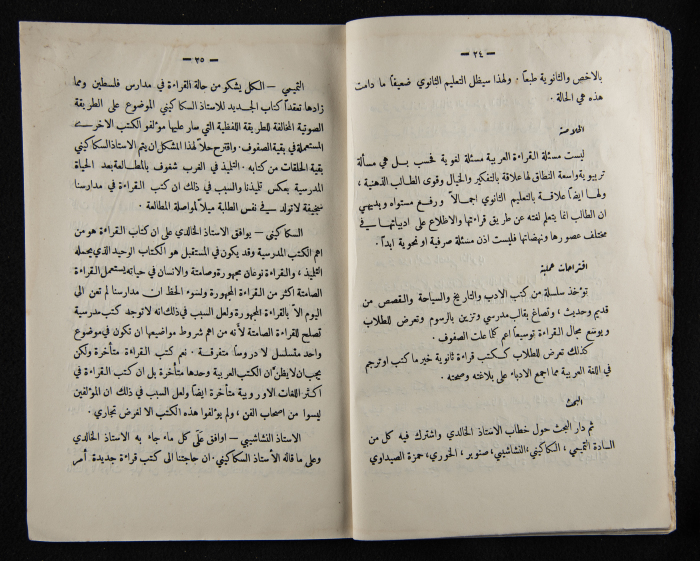 — ٣٤ —
بالاخص والثانوية طبعاً . ولهذا سيظل التعليم الثانوي ضعيفاً ما دامت
هذه هي الحالة .
الخلاصة
ليست مسئلة القراءة العربية مسئلة لغوية فحسب بل هي مسألة
تربيوية واسعة النطاق لها علاقة بالتفكير والخيال وقوى الطالب الذهنية ،
ولها ايضاً علاقة بالتعليم الثانوي اجمالاً ورفع مستواه وبديهي
ان الطالب انما يتعلم لغته عن طريق قراءتها والاطلاع على ادبياتها في
مختلف عصورها ونهضاتها فليست اذن مسئلة صرفية او نحوية ابداً .
اقتراحات عملية
تؤخذ سلسلة من كتب الادب والتاريخ والسياحة والقصص من
قديم وحديث ، وتصاغ بقالب مدرسي وتزين بالرسوم وتعرض للطلاب
ويوضع مجال القراءة توسيعاً اعم كلما علت الصفوف .
كذلك تعرض للطلاب ككتب قراءة ثانوية خير ما كتب او ترجم
في اللغة العربية مما اجمع الادباء على بلاغته وصحته .
البحث
ثم دار البحث حول خطاب الاستاذ الخالدي واشترك فيه كل من
السادة التميمي ، السكاكيني، النشاشيبي، صنوبر ، الخوري، حمزة الصيداوي
— ٣٥ —
التميمي — الكل يشكو من حالة القراءة في مدارس فلسطين ومما
زادها تعقداً كتاب الجديد للاستاذ السكاكيني الموضوع على الطريقة
الصوتية المخالفة للطريقة اللفظية التي سار عليها مؤلفو الكتب الاخرى
المستعملة في بقية الصفوف . واقترح حلاً لهذا المشكل ان يتم الاستاذ السكاكيني
بقية الحلقات من كتابه . التلميذ في الغرب شغوف بالمطالعة بعد الحياة
المدرسية بعكس تليذنا والسبب في ذلك ان كتب القراءة في مدارسنا
سخيفة لا تولد في نفس الطلبة ميلاً لمواصلة المطالعة .
السكاكيني — يوافق الاستاذ الخالدي على ان كتاب القراءة هو من
اهم الكتب المدرسية وقد يكون في المستقبل هو الكتاب الوحيد الذي يحمله
التلميذ ، والقراءة نوعان مجهورة وصامتة والانسان في حياته يستعمل القراءة
الصامتة اكثر من القراءة المجهورة ولسوء الحظ ان مدارسنا لم تعن الى
اليوم الا بالقراءة المجهورة ولعل السبب في ذلك انه لا توجد كتب مدرسية
تصلح للقراءة الصامتة لأنه من اهم شروط مواضيعها ان تكون في موضوع
واحد متسلسل لا دروساً متفرقة . نعم كتب القراءة متأخرة ولكن
يجب ان لا يظن ان الكتب العربية وحدها متأخرة بل ان كتب القراءة في
اكثر اللغات الاوروبية متأخرة ايضاً ولعل السبب في ذلك ان المؤلفين
ليسوا من اصحاب الفن ، ولم يؤلفوا هذه الكتب الا لغرض تجاري .
الاستاذ النشاشيبي — اوافق على كل ما جاء به الاستاذ الخالدي
وعلى ما قاله الأستاذ السكاكيني . ان حاجتنا الى كتب قراءة جديدة أمر